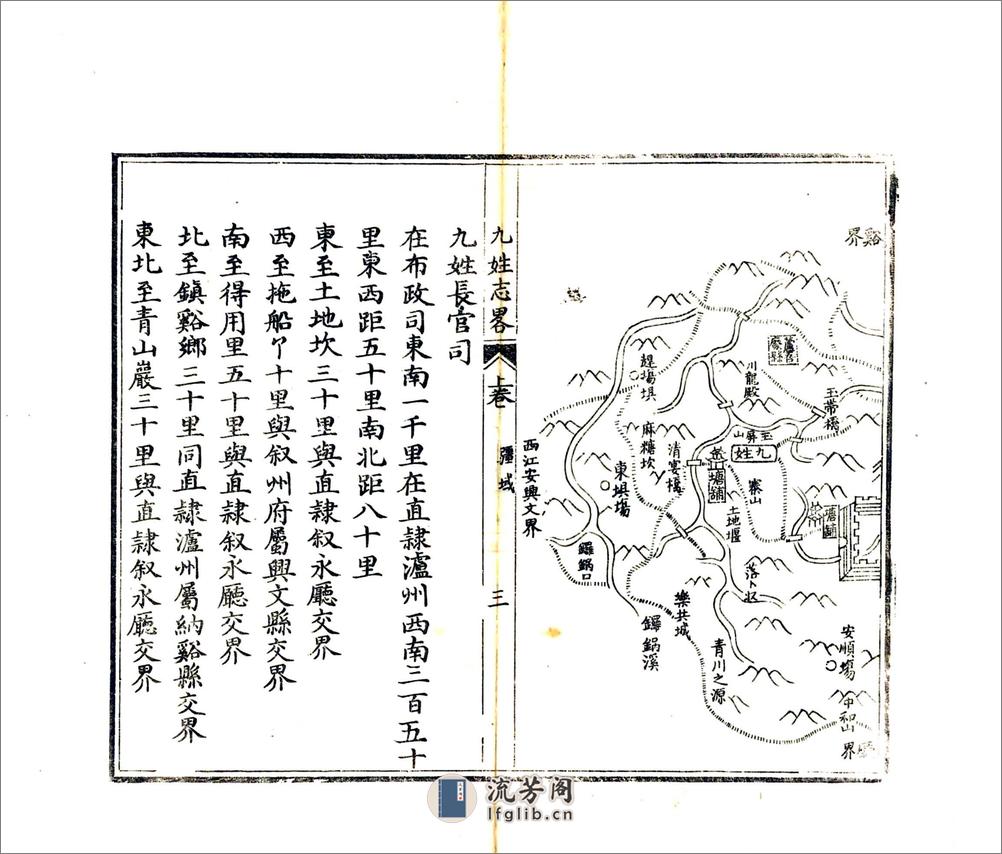 谿界
趕場埧
川龍殿
玉帶橋
麻糖坎
玉屏山
九姓
清宴橋
塘舖
寨山
塘舖
東埧場
土地堰
西江安興文界
鑼鍋口
樂共城
鑼鍋溪
青川之源
安順場
中和山
廳界
九姓志畧
上卷
疆域
三
九姓長官司
在布政司東南一千里在直隷瀘州西南三百五十
里東西距五十里南北距八十里
東至土地坎三十里與直隷叙永廳交界
西至拖船 十里與叙州府屬興文縣交界
南至得用里五十里與直隷叙永廳交界
北至鎮谿鄉三十里同直隷瀘州屬納谿縣交界
東北至青山巖三十里與直隷叙永廳交界
流芳阁
lfglib.cn